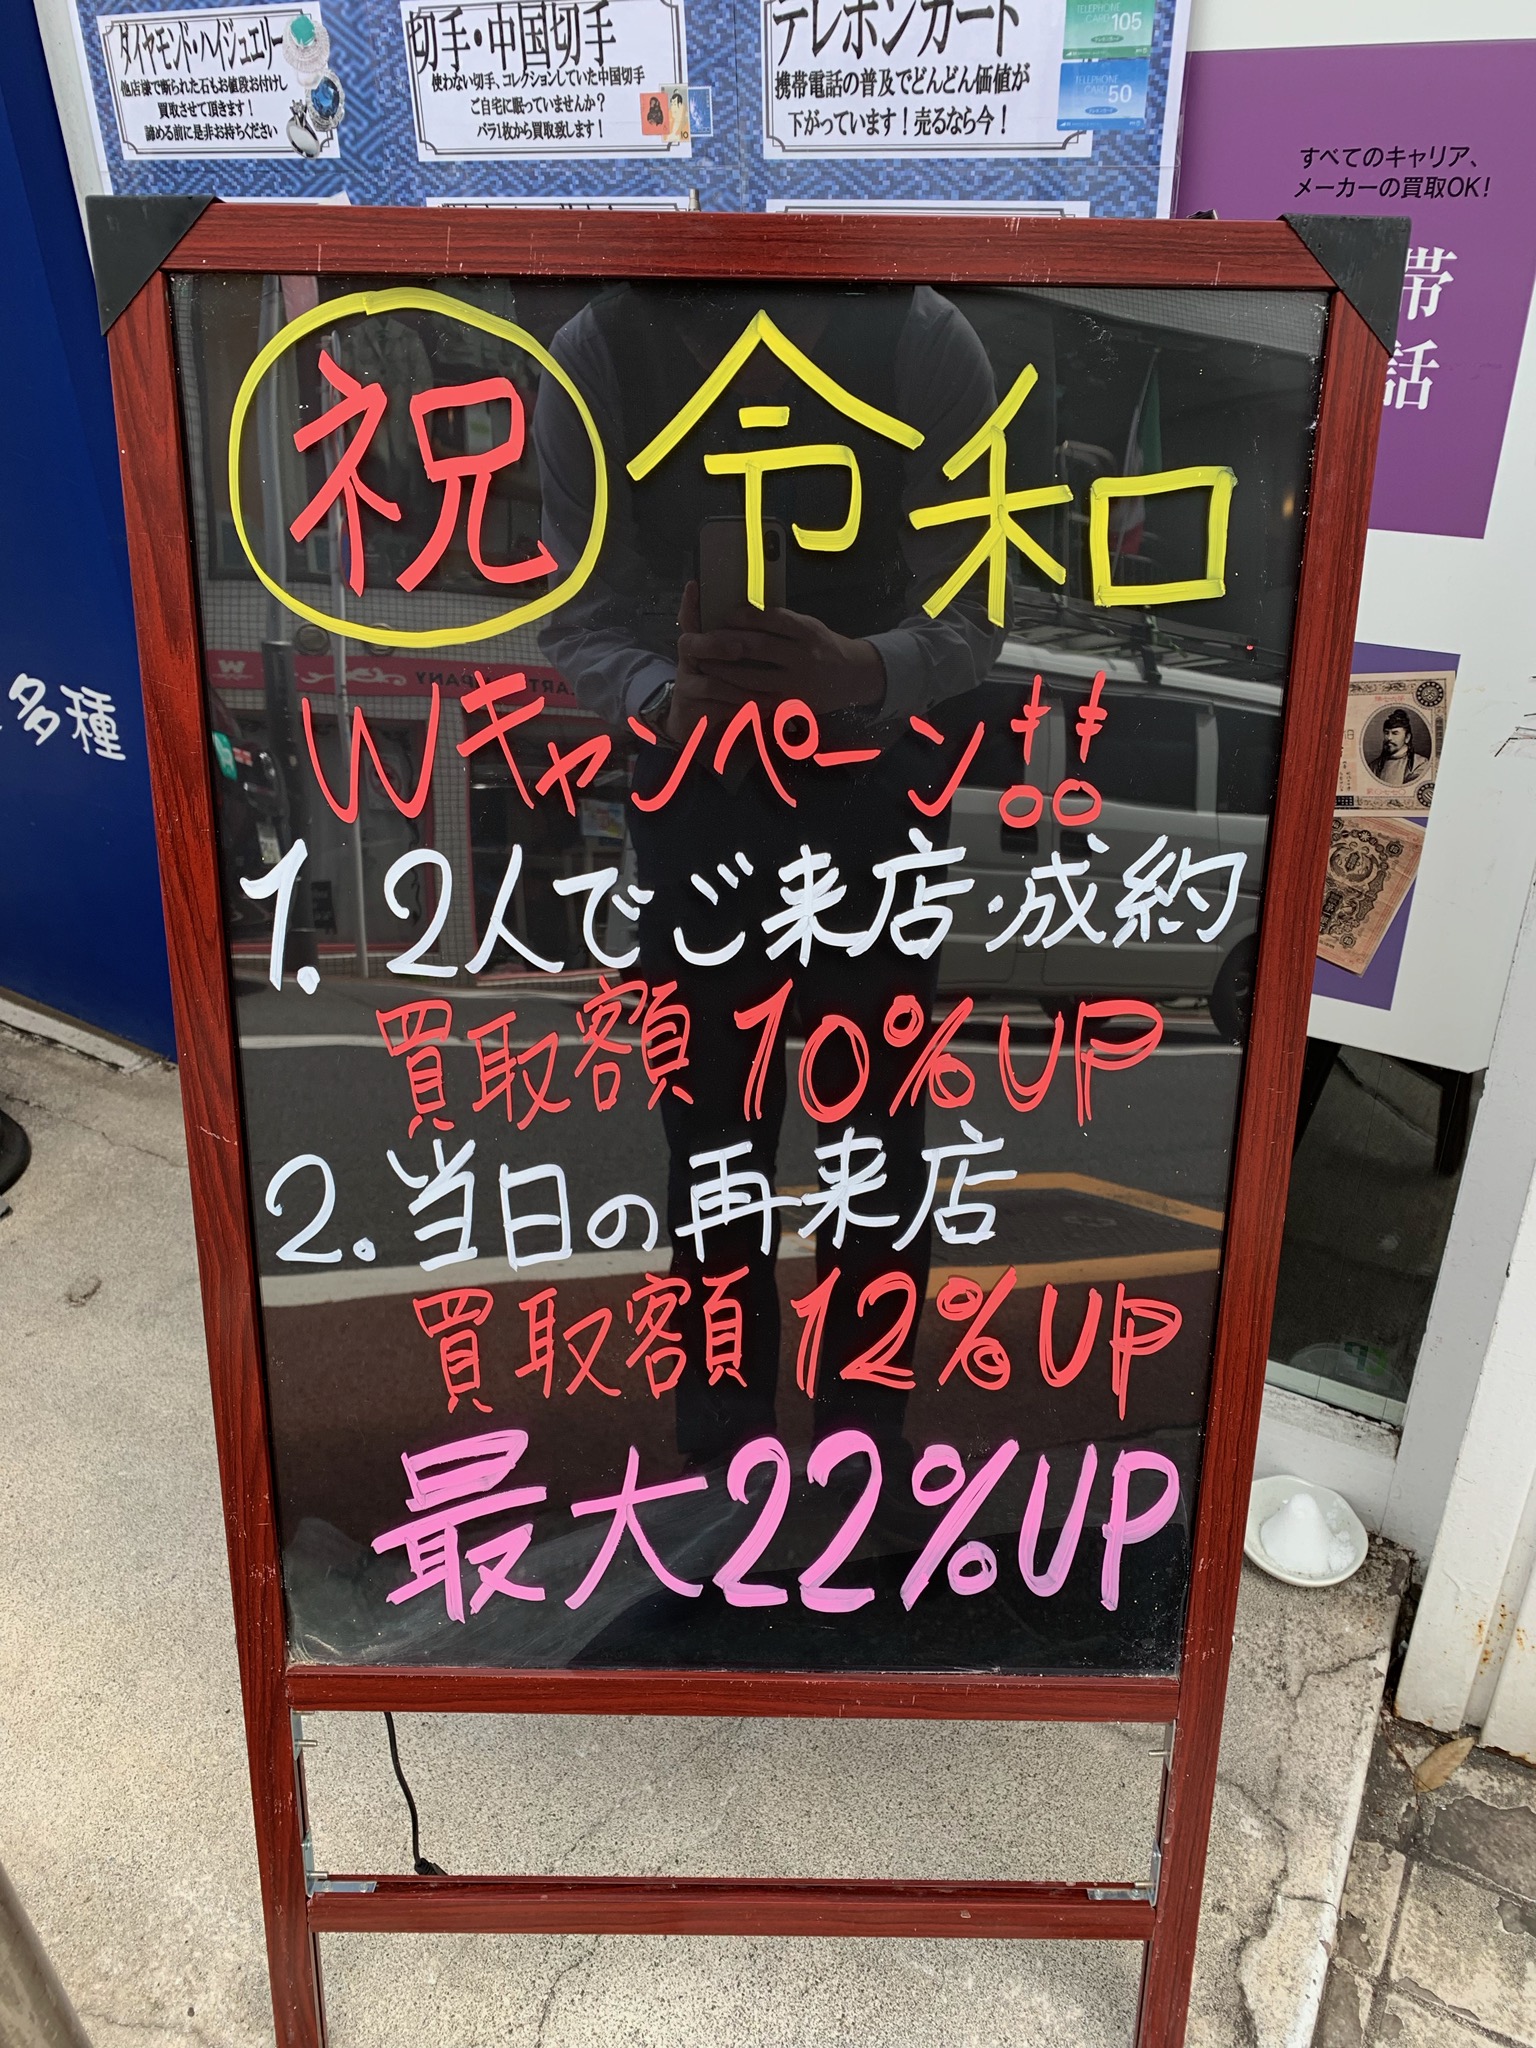 ダイヤモンド・ハイジュエリー
他店様で断られた石もお値段お付けし
買取させて頂きます！
諦める前に是非お持ちください
切手・中国切手
使わない切手、コレクションしていた中国切手
ご自宅に眠っていませんか？
バラ1枚から買取致します！
テレホンカード
携帯電話の普及でどんどん価値が
下がっています！売るなら今！
TELEPHONE
CARD 105
TELEPHONE
CARD 50
すべてのキャリア、
メーカーの買取OK！
帯
話
多種
祝 令和
Wキャンペーン!!
1. 2人でご来店・成約
買取額10%UP
2. 当日の再来店
買取額12%UP
最大22%UP